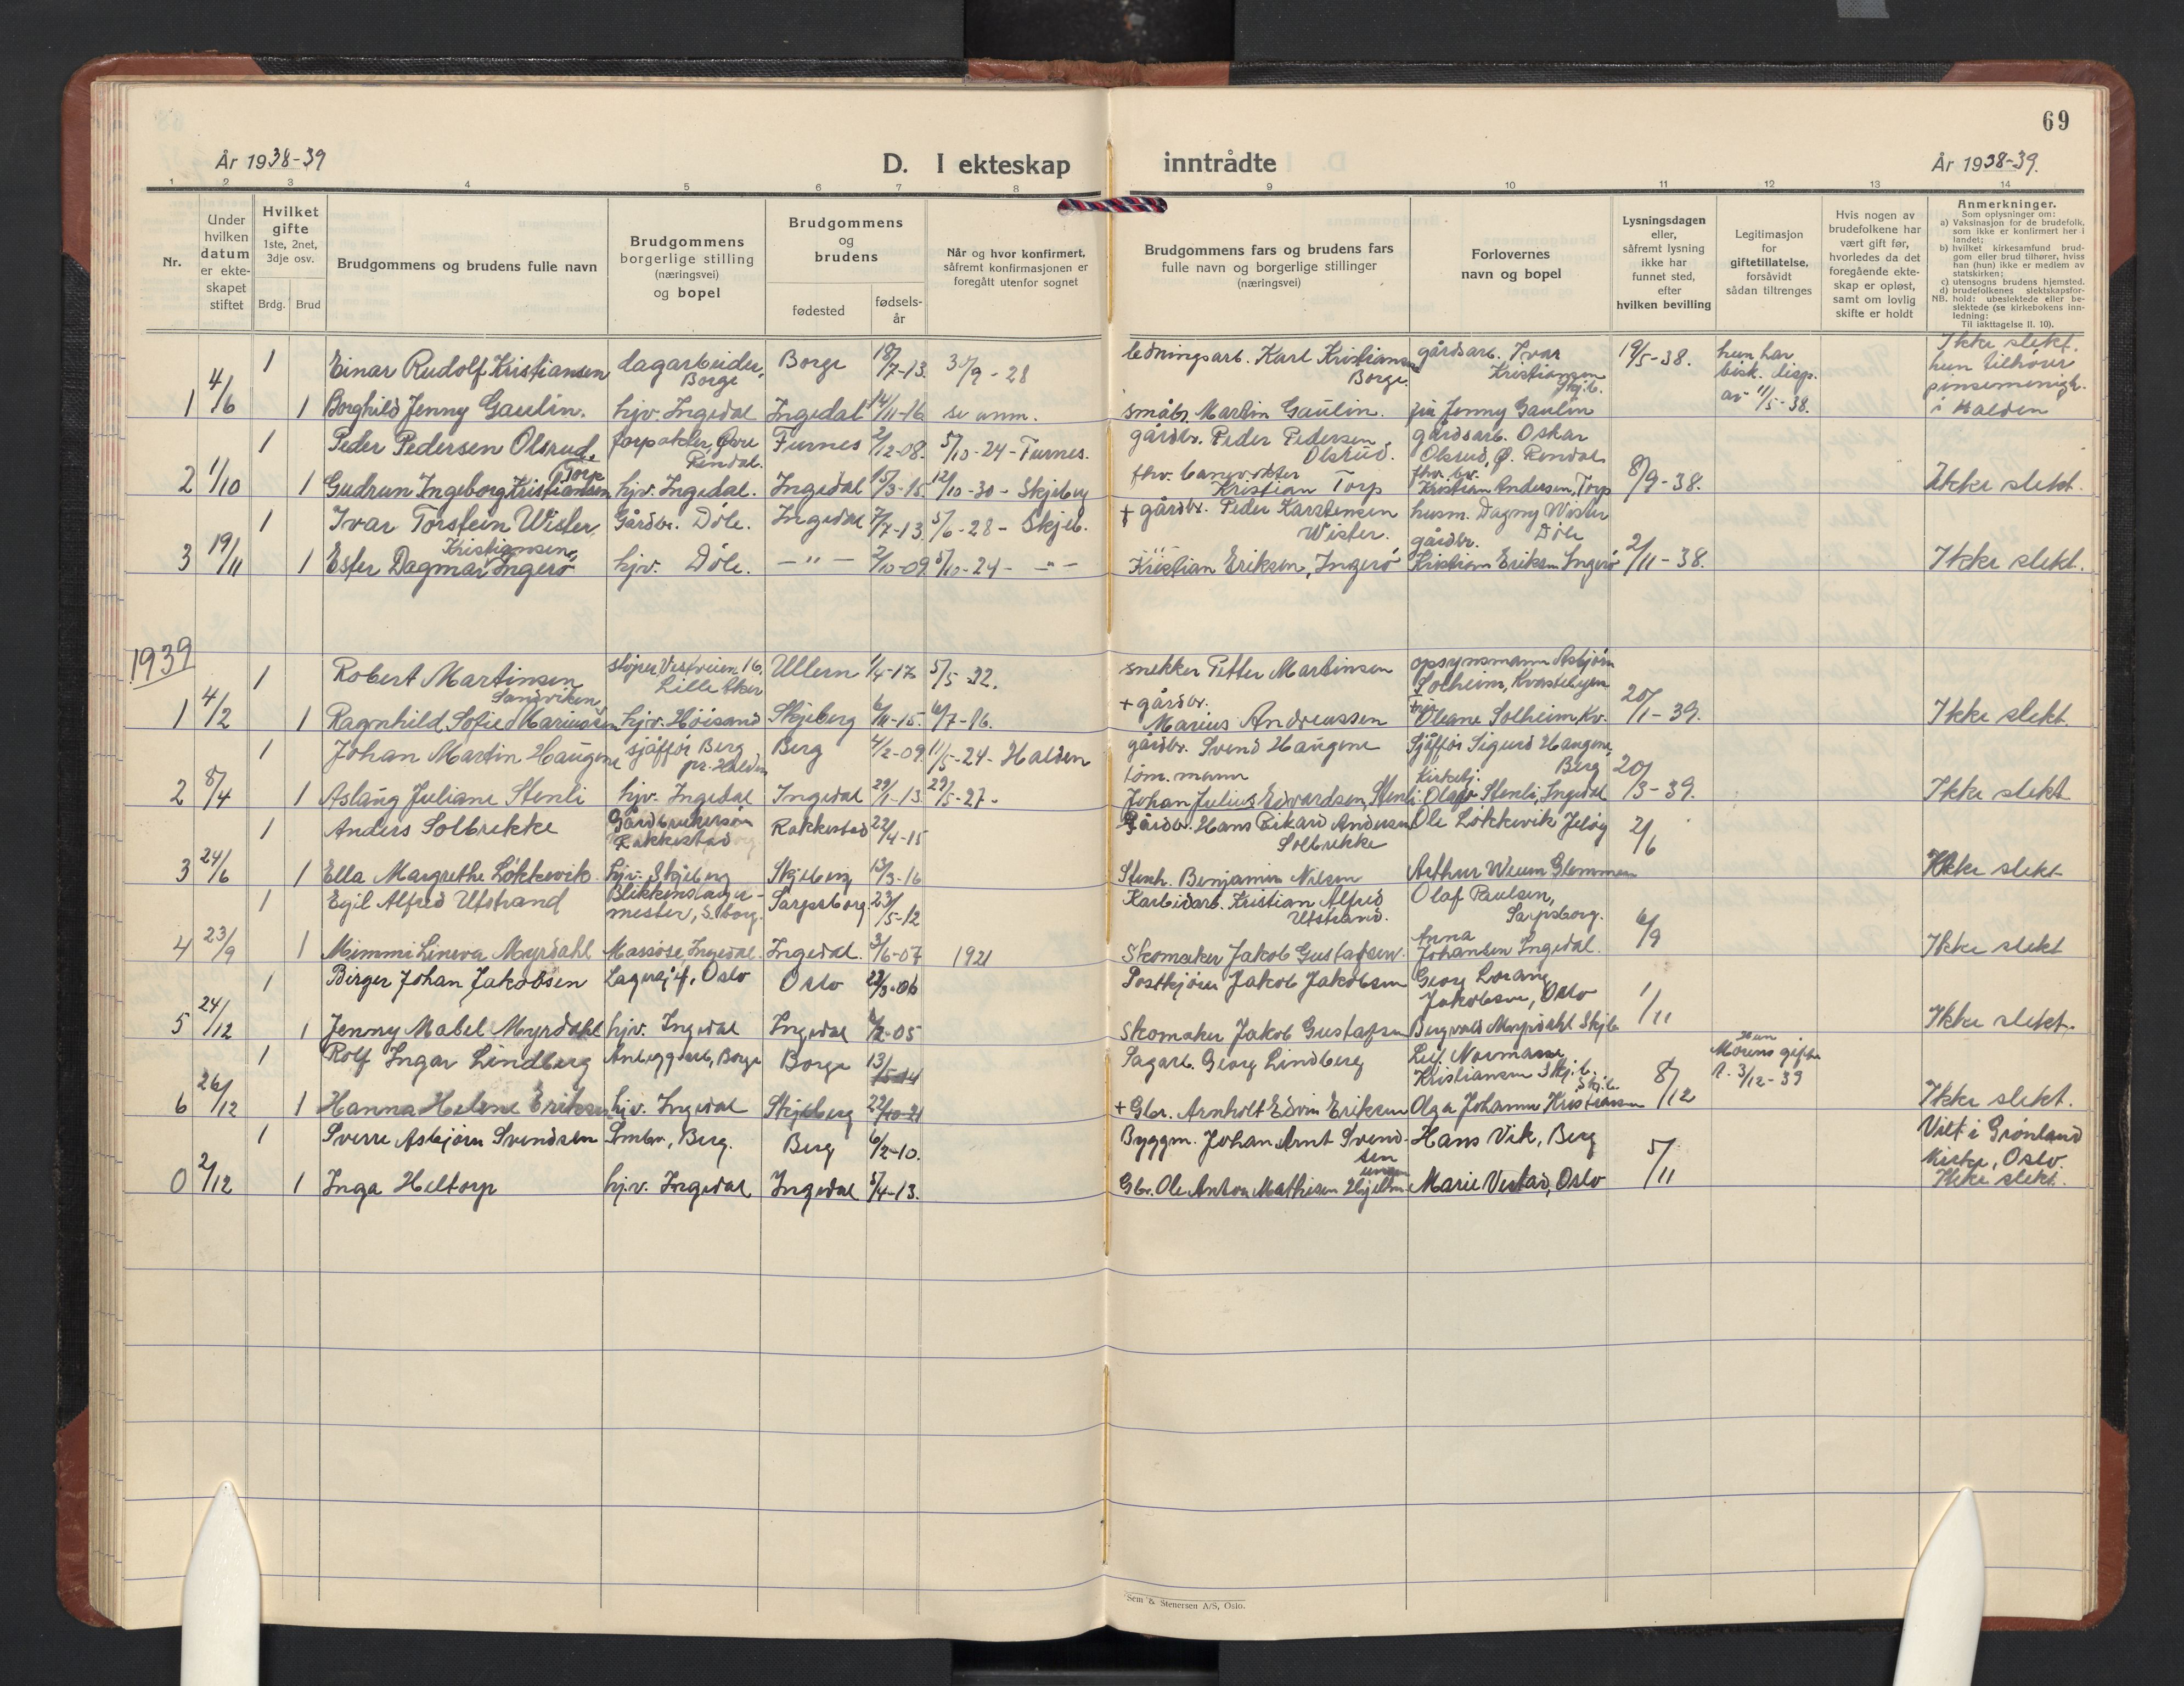 69
År 1938-39
D. I ekteskap inntrådte
År 1938-39.
1 2 3 4 5 6 7 8 9 10 11 12 13 14
Nr.
Under hvilken datum er ekteskapet stiftet
Hvilket gifte 1ste, 2net, 3dje osv.
Brdg. Brud
Brudgommens og brudens fulle navn
Brudgommens borgerlige stilling (næringsvei) og bopel
Brudgommens og brudens
fødested
fødselsår
Når og hvor konfirmert, såfremt konfirmasjonen er foregått utenfor sognet
Brudgommens fars og brudens fars fulle navn og borgerlige stillinger (næringsvei)
Forlovernes navn og bopel
Lysningsdagen eller, såfremt lysning ikke har funnet sted, efter hvilken bevilling
Legitimasjon for giftetillatelse, forsåvidt sådan tiltrenges
Hvis nogen av brudefolkene har vært gift før, hvorledes da det foregående ekteskap er opløst, samt om lovlig skifte er holdt
Anmerkninger.
Som oplysninger om:
a) Vaksinasjon for de brudefolk, som ikke er konfirmert her i landet;
b) hvilket kirkesamfund brudgom eller brud tilhører, hviss han (hun) ikke er medlem av statskirken;
c) utensogns brudens hjemsted.
d) brudefolkenes slektskapsforhold: ubeslektede eller beslektede (se kirkebokens innledning:
NB. Til iakttagelse II. 10).
1 Einar Rudolf Kristiansen dagarbeider, Borge Borge 18/7-13. 3/9-28 ledningsarb. Karl Kristiansen Borge. gårdsarb. Ivar Kristiansen Skjb. 19/5-38. hun har bisk. disp. av 11/5-38. Ikke slekt. hun tilhører pinsemenigh. i Halden
1 4/6 1 Borghild Jenny Gaulin. hjv. Ingedal Ingedal 14/11-16 se anm. småbr. Martin Gaulin. Jenny Gaulin
1 Peder Pedersen Olsrud, forpakter, Øvre Rendal. Furnes 2/12-08. 5/10-24-Furnes. gårdbr. Peder Pedersen Olsrud. gårdsarb. Oskar Olsrud, Ø. Rendal
2 1/10 1 Gudrun Ingeborg Kristiansen Torp hjv. Ingedal. Ingedal 15/3-15 12/10-30-Skjeberg fhv. banevokter Kristian Torp fhv. bv. Kristian Andersen, Torp 8/9-38. Ikke slekt.
1 Ivar Torstein Wister Gårdbr. Døle. Ingedal 7/7-13. 5/6-28-Skjeb. + gårdbr. Peder Karstensen Wister. husm. Dagny Wister Døle
3 19/11 1 Ester Dagmar Kristiansen, Ingerø hjv. Døle. -"- 2/10-09 5/10-24- -"- Kristian Eriksen, Ingerø gårdbr. Kristian Eriksen Ingerø 2/11-38. Ikke slekt.
1939
1 Robert Martinsen Vestveien 16, Lilleaker Ullern 1/4-17 5/5-32. snekker Petter Martinsen opsynsmann Asbjørn Solheim,
1 4/2 1 Ragnhild Sofie Mariussen Sandviken, hjv. Høisand Skjeberg 6/11-15. 6/7-16. + gårdbr. Marius Andreassen Oleane Solheim, Kv. 20/1-39. Ikke slekt.
1 Johan Martin Haugene sjåffør Berg pr. Halden Berg 4/2-09. 11/5-24-Halden gårdbr. Svend Haugene Sjåffør Sigurd Haugene, Berg
2 8/4 1 Aslaug Juliane Stenli hjv. Ingedal Ingedal 29/1-13. 29/5-27. tøm.mann Johan Julius Edvardsen, Stenli Kirketj. Olaf Stenli, Ingedal 20/3-39. Ikke slekt
1 Anders Solbrekke Gårdbrukersøn Rakkestad Rakkestad 22/4-15 Gårdbr. Hans Rikard Andersen Solbrekke Ole Løkkevik Jeløy 2/6
3 24/6 1 Ella Margrethe Løkkevik hjv. Skjeberg Skjeberg 13/3-16 Stenh. Benjamin Nilsen Arthur Weum Glemmen Ikke slekt
1 Egil Alfred Utstrand Blikkenslagermester, S.borg. Sarpsborg 23/5-12 Karbidarb. Kristian Alfred Utstrand. Olaf Paulsen, Sarpsborg.
4 23/9 1 Mimmi Lineva Myrdahl Massøse, Ingedal. Ingedal. 3/6-07 1921 Skomaker Jakob Gustafsen. Anna Johansen Ingedal. 6/9 Ikke slekt
1 Birger Johan Jakobsen Oslo Oslo 23/3-06 Postkjører Jakob Jakobsen Georg Lorang Jakobsen, Oslo
5 24/12 1 Jenny Mabel Myrdahl hjv. Ingedal Ingedal 4/2-05 Skomaker Jakob Gustafsen Bergvald Myrdahl Skjb. 1/11 Ikke slekt.
1 Rolf Ingar Lindberg Anleggsarb, Borge Borge 13/5-14 Sagarb. Georg Lindberg Leif Normann Kristiansen Skj.b. Hun Morens gifte t. 3/12-39
6 26/12 1 Hanna Helene Eriksen hjv. Ingedal Skjeberg 22/10-21 + Gbr. Arnholt Edvin Eriksen Olga Johanne Kristiansen Skj.b. 8/12 Ikke slekt.
1 Sverre Asbjørn Svendsen Smbr, Berg. Berg 6/2-10. Byggm. Johan Arnt Svendsen Hans Vik, Berg Viet i Grønland Kirke, Oslo.
0 2/12 1 Inga Heltorp hjv. Ingedal Ingedal 5/4-13. Gbr. Ole Anton Mathisen Marie Vestad, Oslo 5/11 Ikke slekt.
Sem & Stenersen A/S, Oslo.